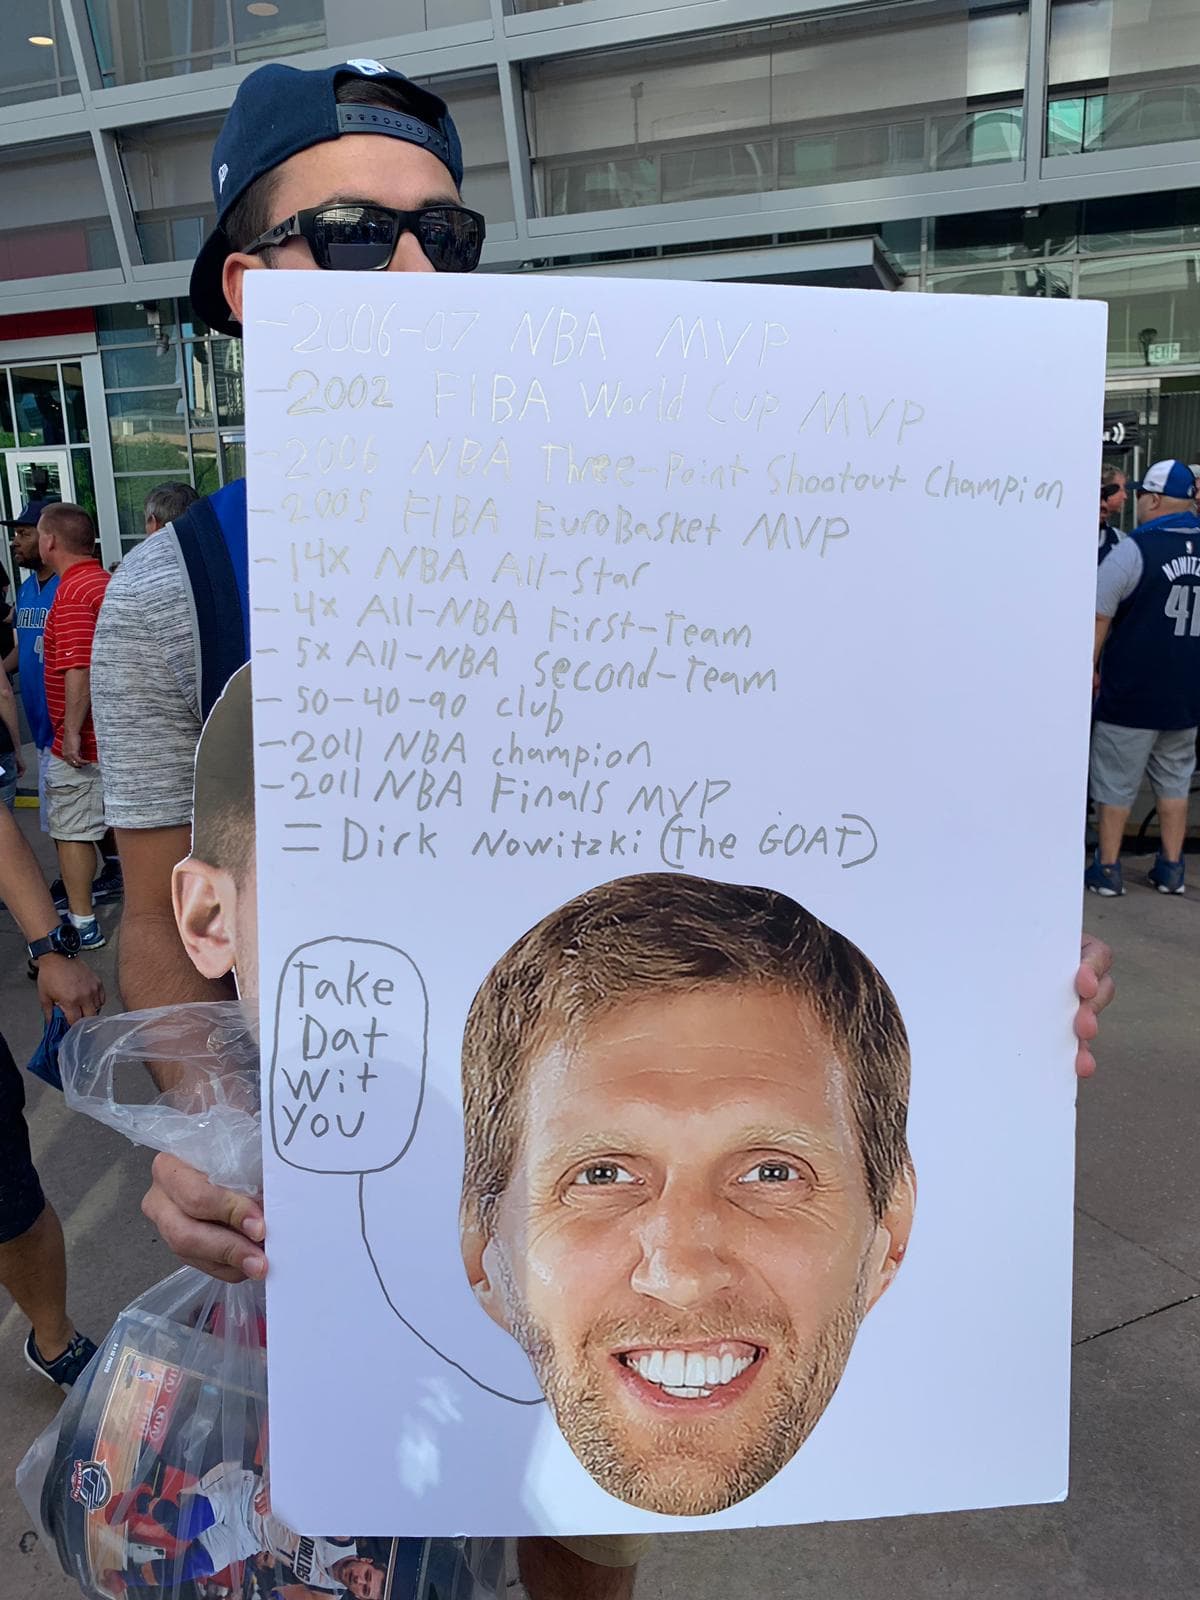 -2006-07 NBA MVP
-2002 FIBA World Cup MVP
-2006 NBA Three-Point Shootout Champion
-2005 FIBA EuroBasket MVP
-14x NBA All-Star
-4x All-NBA First-Team
-5x All-NBA Second-Team
-50-40-90 club
-2011 NBA champion
-2011 NBA Finals MVP
= Dirk Nowitzki (The GOAT)
Take
Dat
Wit
You
EXIT
41
KIA